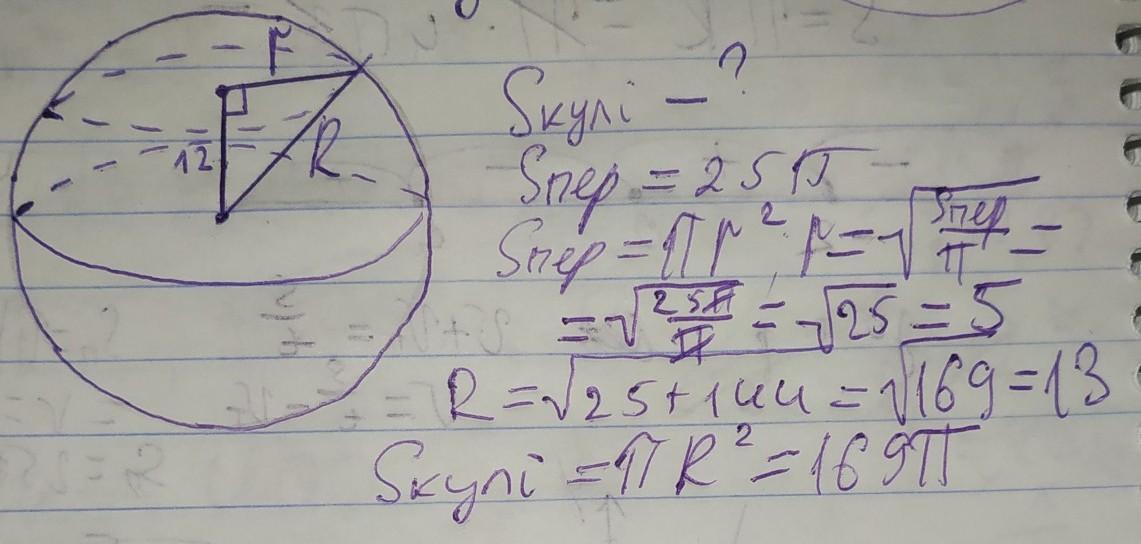 r
12
R
Sкулі - ?
Sпер = 25π
Sпер = πr², r = √(Sпер/π) =
= √(25π/π) = √25 = 5
R = √25+144 = √169 = 13
Sкулі = πR² = 169π